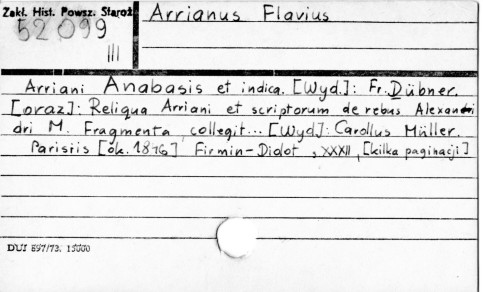 Zakł. Hist. Powsz. Staroż
Arrianus Flavius
52099
III
Arriani Anabasis et indica. [Wyd.]: Fr. Dübner.
[oraz]: Reliqua Arriani et scriptorum de rebus Alexan
dri M. Fragmenta collegit... [Wyd]: Carollus Müller.
Parisiis [ok. 1876] Firmin-Didot, s. XXXII, [kilka paginacji]
DUI 897/73. 15000